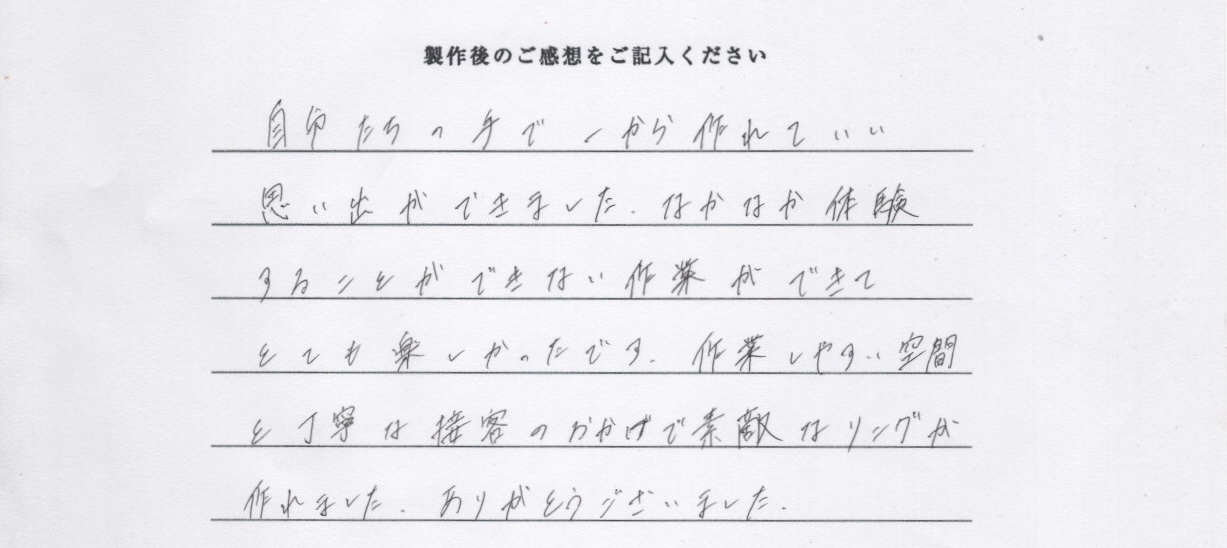 製作後のご感想をご記入ください
自分たちの手で一から作れていい
思い出ができました.なかなか体験
することができない作業ができて
とても楽しかったです.作業しやすい空間
と丁寧な接客のおかげで素敵なリングが
作れました.ありがとうございました.